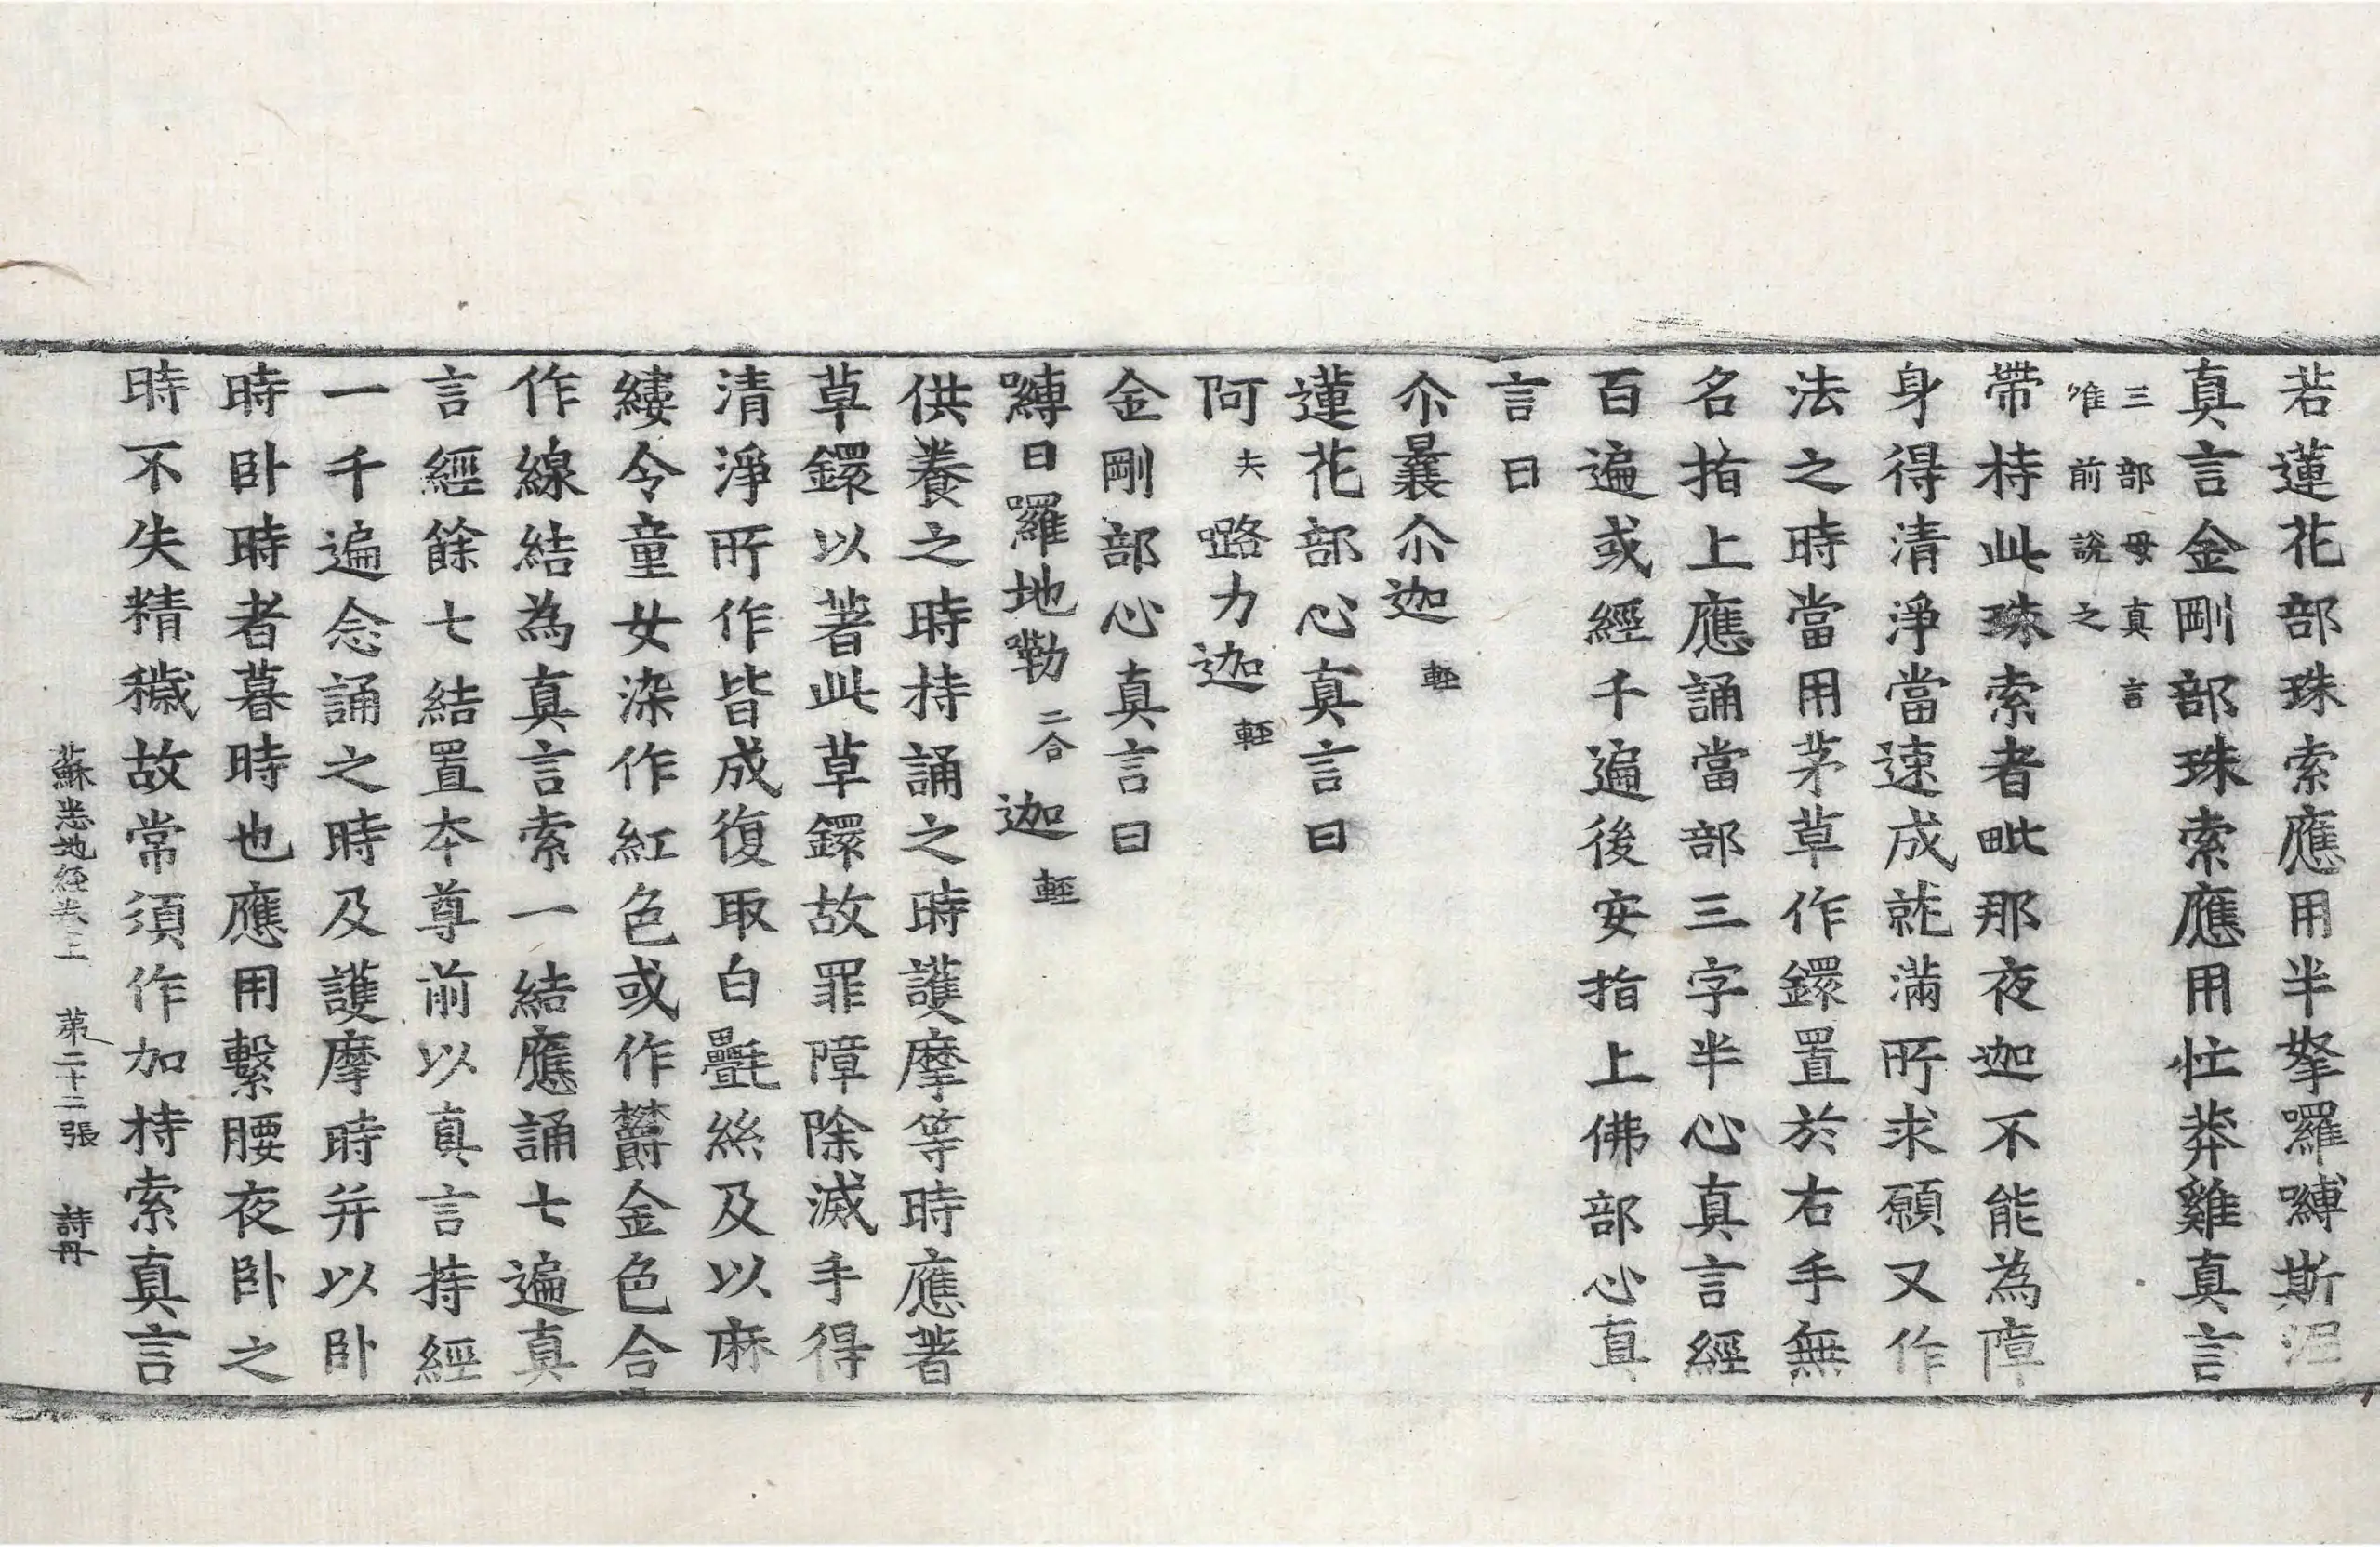 若蓮花部珠索應用半拏囉嚩斯泥
真言金剛部珠索應用忙莽雞真言
三部母真言
唯前說之
帶持此珠索者毗那夜迦不能為障
身得清淨當速成就滿所求願又作
法之時當用茅草作鐶置於右手無
名指上應誦當部三字半心真言經
百遍或經千遍後安指上佛部心真
言曰
尒曩尒迦輕
蓮花部心真言曰
阿夫嚕力迦輕
金剛部心真言曰
嚩日囉地勒二合迦輕
供養之時持誦之時護摩等時應著
草鐶以著此草鐶故罪障除滅手得
清淨所作皆成復取白㲲絲及以麻
縷令童女染作紅色或作欝金色合
作線結為真言索一結應誦七遍真
言經餘七結置夲尊前以真言持經
一千遍念誦之時及護摩時并以卧
時卧時者暮時也應用繫腰夜卧之
時不失精穢故常須作加持索真言
蘇悉地經卷上 第二十二張 詩